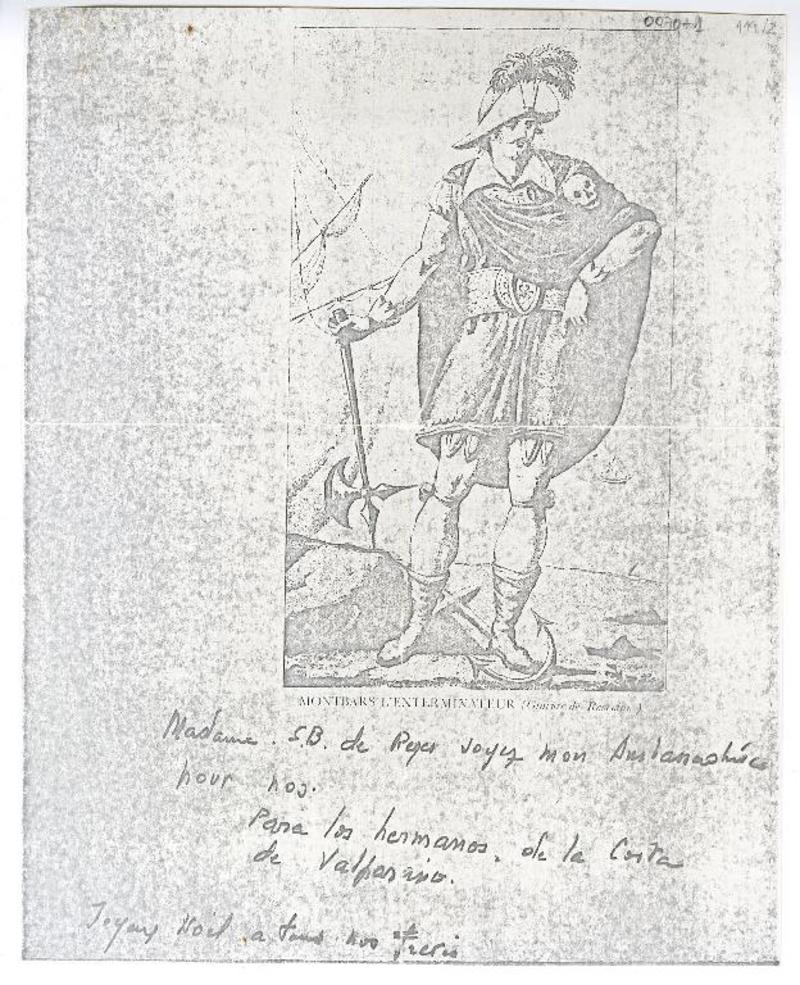 0070-1
MONTBARS L'EXTERMINATEUR (Gravure de
Madame. S.B. de soyez mon
pour nos.
Para los hermanos, de la Costa
de Valparaiso.
Joyeux Noël a tous nos Freres